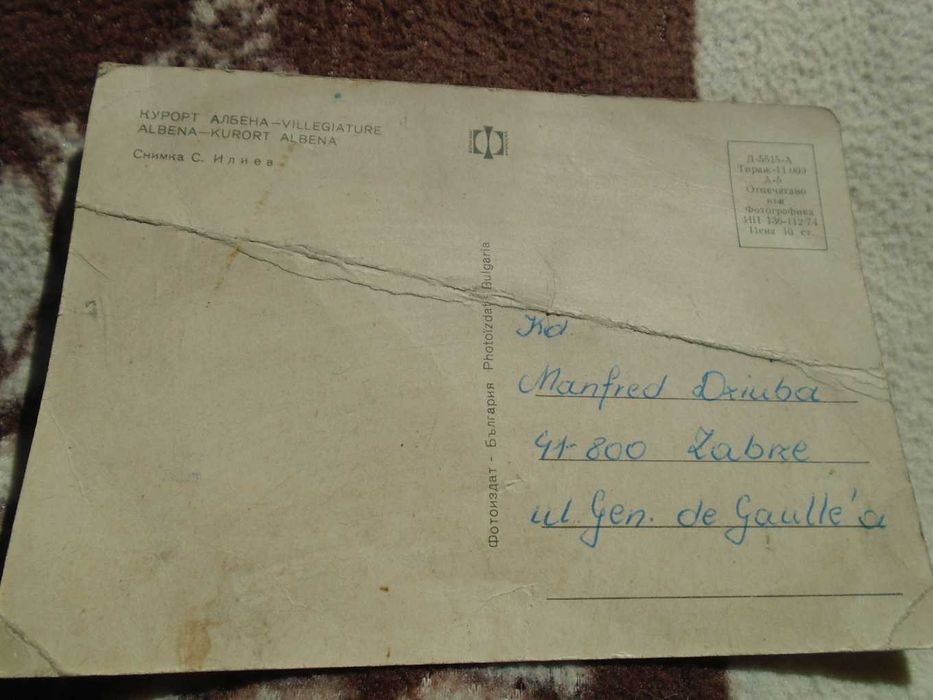 КУРОРТ АЛБЕНА—VILLEGIATURE
ALBENA—KURORT ALBENA
Снимка С. Илиев
Д-5515-А
Тираж-11 000
А-6
Отпечатано
във
Фотографика
ИП 136-112-74
Цена 10 ст.
Фотоиздат - България Photoizdat Bulgaria
Kd.
Manfred Dziuba
41-800 Zabrze
ul. Gen. de Gaulle'a